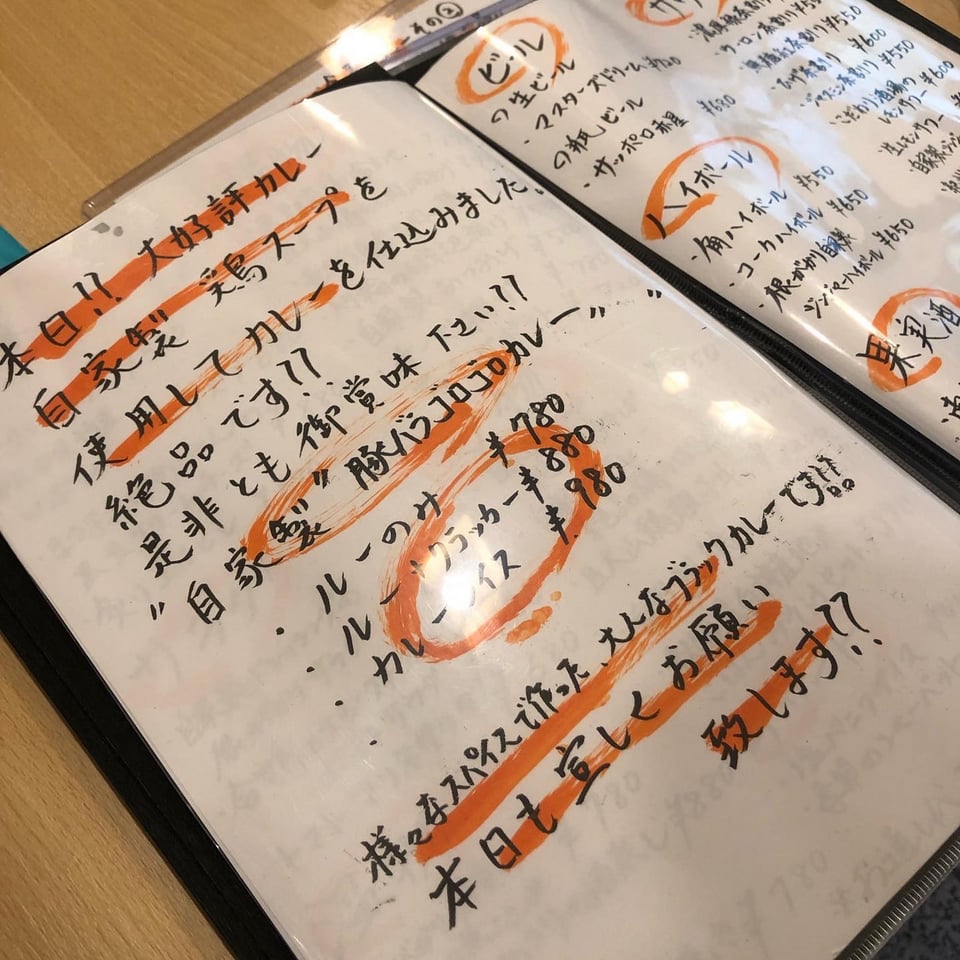 本日!! 大好評カレー
自家製 鶏スープを
使用してカレーを仕込みました。
絶品です!!
是非とも御賞味下さい!!
"自家製"豚バラゴロゴロカレー"
・ルーのみ ¥780
・ルー+クラッカー ¥880
・カレーライス ¥980
様々なスパイスで作った、大人なブラックカレーです!!
本日も宜しくお願い
致します!!
その②
ビール
の生ビール
・マスターズドリーム
の瓶ビール
・サッポロ赤星 ¥680
ハイボール
・角ハイボール ¥550
・コークハイボール ¥650
・根ががり自家製
ジンジャーハイボール ¥650
果実酒
・ウーロン茶割り ¥550
・ジャスミン茶割り ¥550
・こだわり酒場の
レモンサワー ¥600